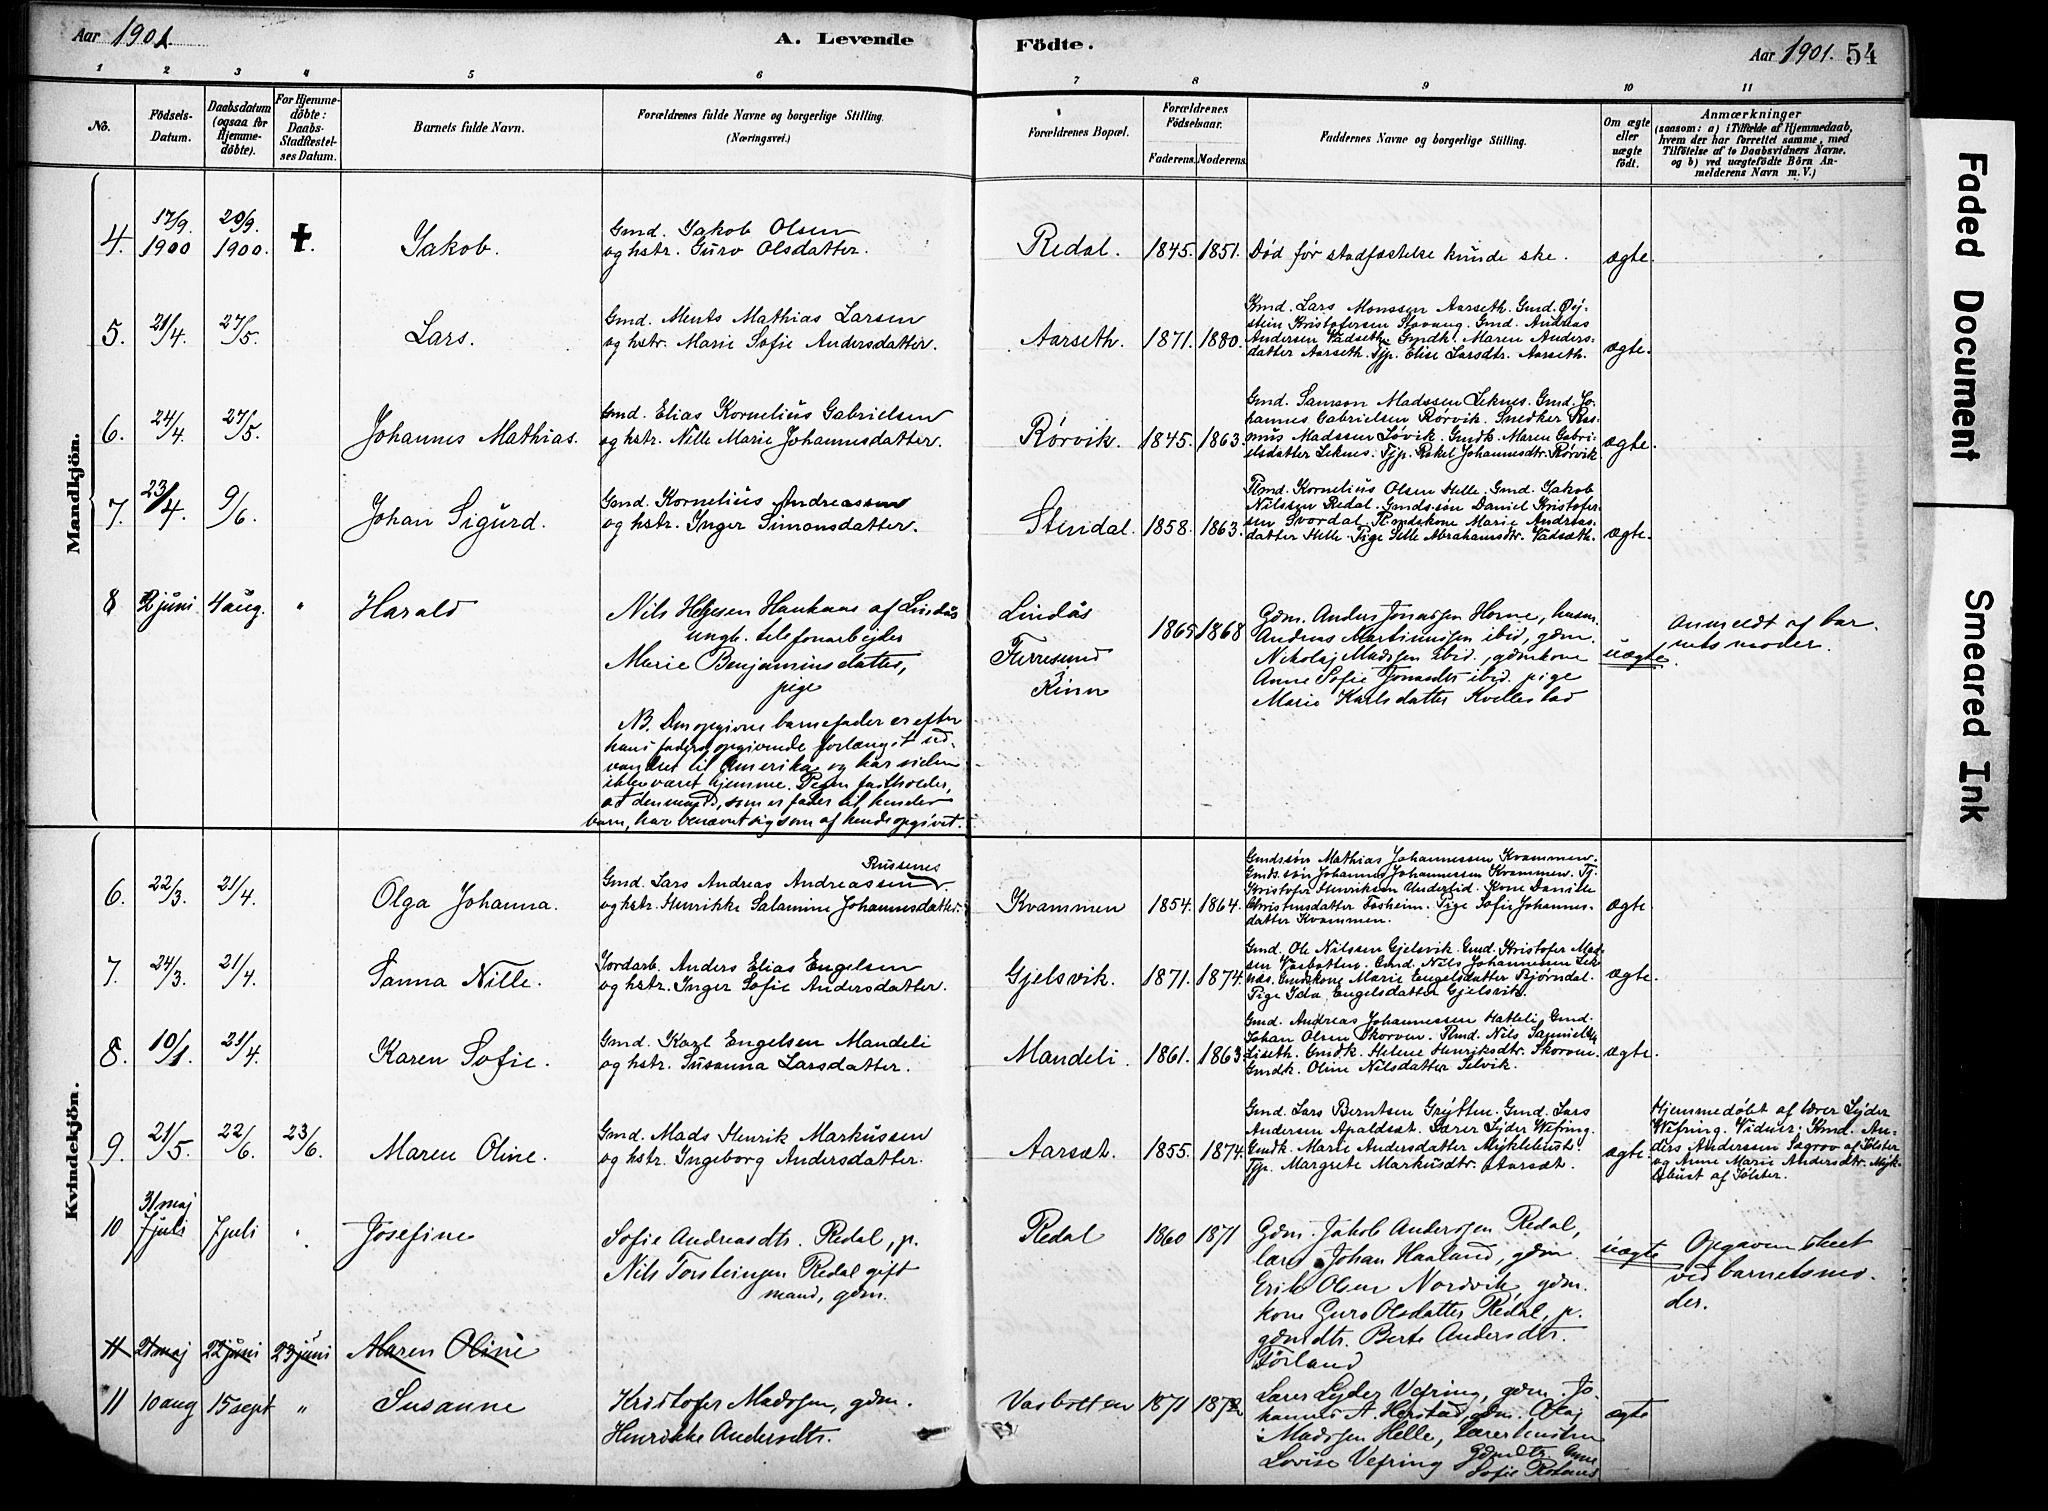 Aar 1901.
A. Levende Födte.
Aar 1901. 54
1 2 3 4 5 6 7 8 9 10 11
No.
Födsels-
Datum.
Daabsdatum
(ogsaa for
Hjemme-
döbte).
For Hjemme-
döbte:
Daabs-
Stadfæstel-
ses Datum.
Barnets fulde Navn.
Forældrenes fulde Navne og borgerlige Stilling.
(Næringsvei.)
Forældrenes Bopæl.
Forældrenes
Födselsaar.
Faderens. Moderens.
Faddernes Navne og borgerlige Stilling.
Om ægte
eller
uægte
födt.
Anmærkninger
(saasom: a) i Tilfælde af Hjemmedaab,
hvem der har forrettet samme, med
Tilföielse af to Daabsvidners Navne,
og b) ved uægtefödte Börn An-
melderens Navn m. V.)
Mandkjön.
4. 17/9. 1900 20/9. 1900. †. Jakob.
Gmd. Jakob Olsen
og hstr. Guro Olsdatter.
Redal. 1845. 1851. Död før stadfæstelse kunde ske. ægte.
5. 21/4. 27/5. Lars.
Gmd. Ments Mathias Larsen
og hstr. Marie Sofie Andersdatter.
Aarseth. 1871. 1880.
Kmd. Lars Monssen Aarseth. Gmd. Øj-
stein Kristofersen Stavang. Gmd. Andreas
Andersen Vadseth. Gmdk. Maren Anders-
datter Aarseth. Tjp. Elise Larsdtr. Aarseth.
ægte.
6. 24/4. 27/5. Johannes Mathias.
Gmd. Elias Kornelius Gabrielsen
og hstr. Nille Marie Johannesdatter.
Rørvik. 1845. 1863.
Gmd. Samson Madssen Leknes. Gmd. Jo-
hannes Gabrielsen Rørvik. Snedker Ras-
mus Madssen Løvik. Gmdk. Maren Gabri-
elsdatter Leknes. Tjp. Rakel Johannesdtr. Rørvik
ægte.
7. 23/4. 9/6. Johan Sigurd.
Gmd. Kornelius Andreassen
og hstr. Inger Simonsdatter.
Stendal. 1858. 1863.
Plmd. Kornelius Olsen Helle. Gmd. Jakob
Nilssen Redal. Gmdssøn Daniel Kristofer-
sen Svordal. Plmdskone Marie Andreas-
datter Helle. Pige Selle Abrahamsdtr. Vadsæth.
ægte.
8 2 juni 4 aug. " Harald
Nils Helgesen Haukaas af Lindås
ungk. telefonarbejder
Marie Benjaminsdatter,
pige
Lindås
Furresund
Kinn
1865 1868
Gdm. Anders Jonassen Horne, husm.
Andreas Martinussen ibid, gdm.
Nikolaj Madssen ibid., gdmkone
Anne Sofie Jonasdtr ibid. pige
Marie Karlsdatter Kvellestad
uægte
Anmeldt af bar-
nets moder.
NB. Den opgivne barnefader er efter
hans faders opgivende forlængst ud-
vandret til Amerika og har siden
ikke været hjemme. Pigen fastholder,
at den mand, som er fader til hendes
barn, har benævnt sig som af hende opgivet.
Kvindekjön.
6. 22/3. 21/4 Olga Johanna.
Russenes
Gmd. Lars Andreas Andreassen
og hstr. Henrikke Salamine Johannesdatter.
Kvammen 1854. 1864.
Gmdssøn Mathias Johannessen Kvammen.
Gmdssøn Johannes Johannessen Kvammen. Tj.
Kristofer Henriksen Undertid. Kone Danielle
Christensdatter Forheim. Pige Sofie Johannes-
datter Kvammen.
ægte.
7. 24/3. 21/4 Sanna Nille.
Jordarb. Anders Elias Engelsen
og hstr. Inger Sofie Andersdatter.
Gjelsvik. 1871. 1874.
Gmd. Ole Nilssen Gjelsvik. Gmd. Kristofer Mad-
sen Vasbotten. Gmd. Nils Johannessen Lek-
nes. Gmdskone Marie Engelsdatter Bjørndal.
Pige Ida Engelsdatter Gjelsvik.
ægte.
8. 10/1. 21/4. Karen Sofie.
Gmd. Karl Engelsen Mandeli
og hstr. Susanna Larsdatter.
Mandeli. 1861. 1863.
Gmd. Andreas Johannessen Hatleli, Gmd.
Johan Olsen Skorven. Plmd. Nils Samuelsen
Liseth. Gmdk. Helene Henriksdtr. Skorven.
Gmdk. Oline Nilsdatter Selvik.
ægte.
9. 21/5. 22/6. 23/6. Maren Oline.
Gmd. Mads Henrik Markussen
og hstr. Ingeborg Andersdatter.
Aarsæt. 1855. 1874.
Gmd. Lars Berntsen Grytten. Gmd. Lars
Andersen Apaldset. Lærer Lyder Wefring.
Gmdk. Marie Andersdatter Myklebust.
Tjp. Margrete Markusdtr. Aarsæt.
ægte.
Hjemmedøbt af lærer Lyder
Wefring. Vidner: Kmd. An-
ders Anderssen Sagrov af Jølster
og Anne Marie Andersdtr. Myk-
lebust af Jølster.
10 31 maj 7 juli 7 juli " Josefine
Sofie Andreasdtr. Redal, p.
Nils Torsteinsen Redal gift
mand, gdm.
Redal 1860 1871
Gdm. Jakob Anderssen Redal,
lærer Johan Haaland, gdm.
Erik Olsen Nordvik, gdm.
kone Guro Olsdatter Redal, p.
gdmdtr. Berte Andersdtr.
Førland
uægte
Opgaven skeet
ved barnets mo-
der.
11 21 maj 22 juni 23 juni Maren Oline
11 10 aug 15 sept " Susanne
Kristofer Madssen, gdm.
Henrikke Andersdtr.
Vasbotten 1871 1872
Lærer Lyder Vefring, gdm. Jo-
hannes A. Herstad, gdm.
Madssen Helle, Lærerhustru
Lovise Vefring Gdmdtr.
Sofie
ægte
Faded Document
Smeared Ink